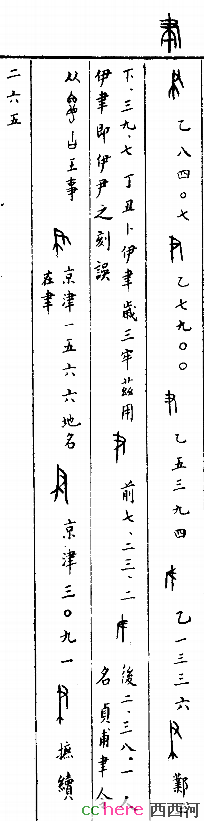 乙八四〇七 乙七九〇〇 乙五三九四 乙一三三六 鄴
下.三九.七 丁丑卜伊聿歲三牢茲用
伊聿即伊尹之刻誤
前七.二三.二 後二.三八.一.人
名貞甫聿人
从 王事 京津一五六六地名
在聿
京津三〇九一 摭續
二六五
cchere 西西河